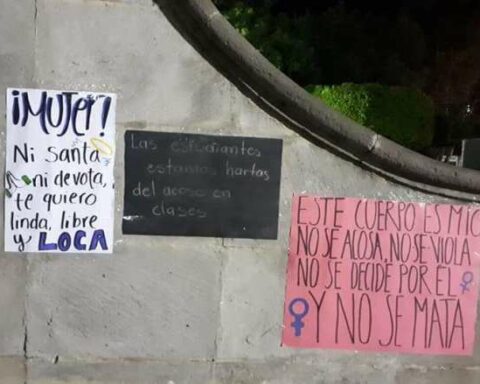 ¡MUJER!
Ni Santa
ni devota,
te quiero
linda, libre
y LOCA
Las estudiantes
estamos hartas
del acoso en
clases
ESTE CUERPO ES MIO
NO SE ACOSA, NO SE VIOLA
NO SE DECIDE POR ÉL
Y NO SE MATA